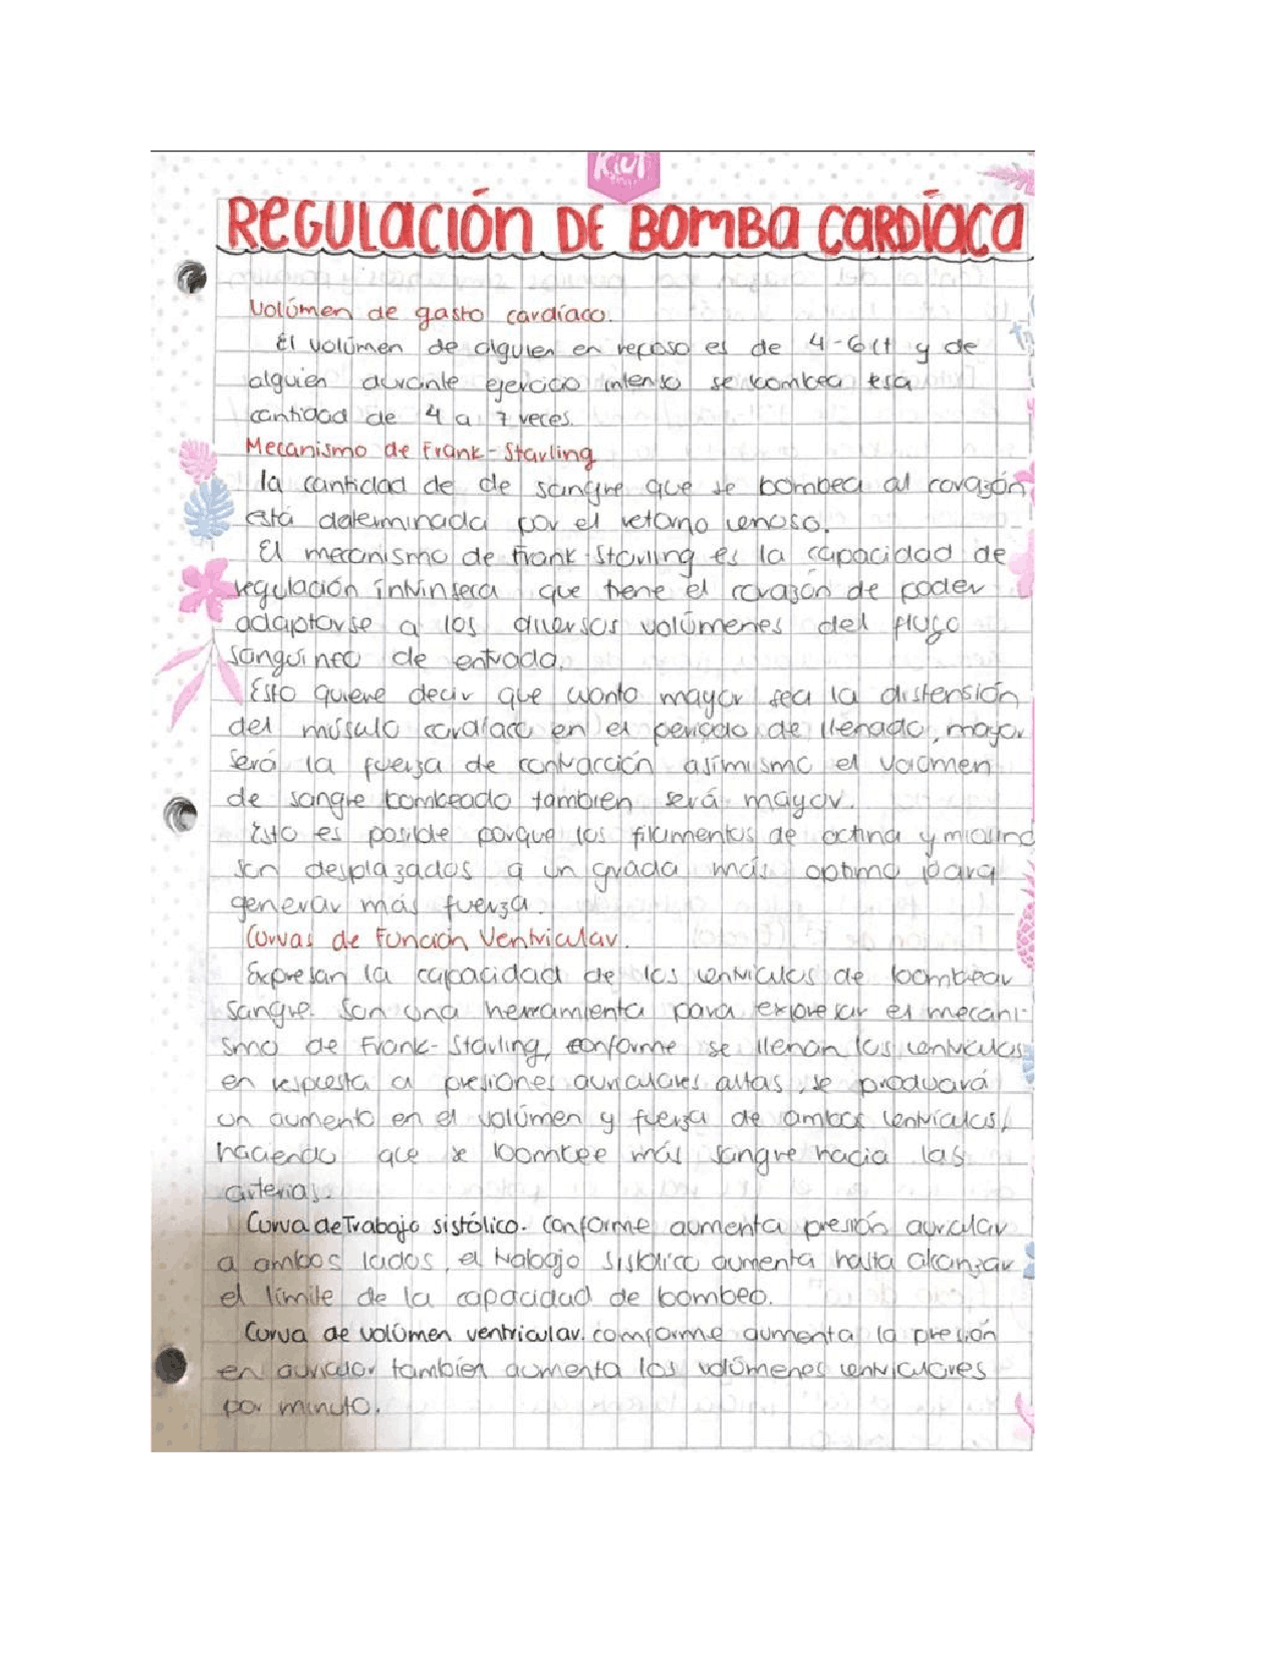 Kiut
REGULACIÓN DE BOMBA CARDÍACA
Volúmen de gasto cardíaco.
El volúmen de alguien en reposo es de 4-6 lt y de
alguien durante ejercicio intenso se bombea esa
cantidad de 4 a 7 veces.
Mecanismo de Frank-Starling
la cantidad de de sangre que se bombea al corazón
está determinada por el retorno venoso.
El mecanismo de Frank-Starling es la capacidad de
regulación intrínseca que tiene el corazón de poder
adaptarse a los diversos volúmenes del flujo
sanguíneo de entrada.
Esto quiere decir que cuanto mayor sea la distensión
del músculo cardíaco en el periodo de llenado, mayor
será la fuerza de contracción asimismo el volúmen
de sangre bombeado tambien será mayor.
Esto es posible porque los filamentos de actina y miosina
son desplazados a un grado más optimo para
generar más fuerza.
Curvas de Función Ventricular.
Expresan la capacidad de los ventriculos de bombear
sangre. Son una herramienta para expresar el mecani-
smo de Frank-Starling, conforme se llenan los ventriculos
en respuesta a presiones auriculares altas, se produará
un aumento en el volúmen y fuerza de ambos ventriculos,
haciendo que se bombee más sangre hacia las
arterias.
Curva de Trabajo sistólico. Conforme aumenta presión auricular
a ambos lados, el trabajo sistólico aumenta hasta alcanzar
el límite de la capacidad de bombeo.
Curva de volúmen ventricular. comforme aumenta la presión
en auricular tambien aumenta los volúmenes ventriculares
por minuto.